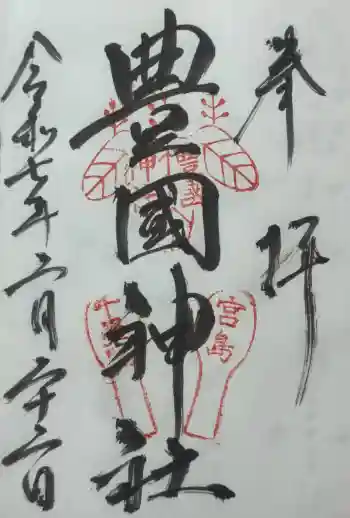 奉拝
豊國神社
宮島
千畳閣
令和七年二月二十二日